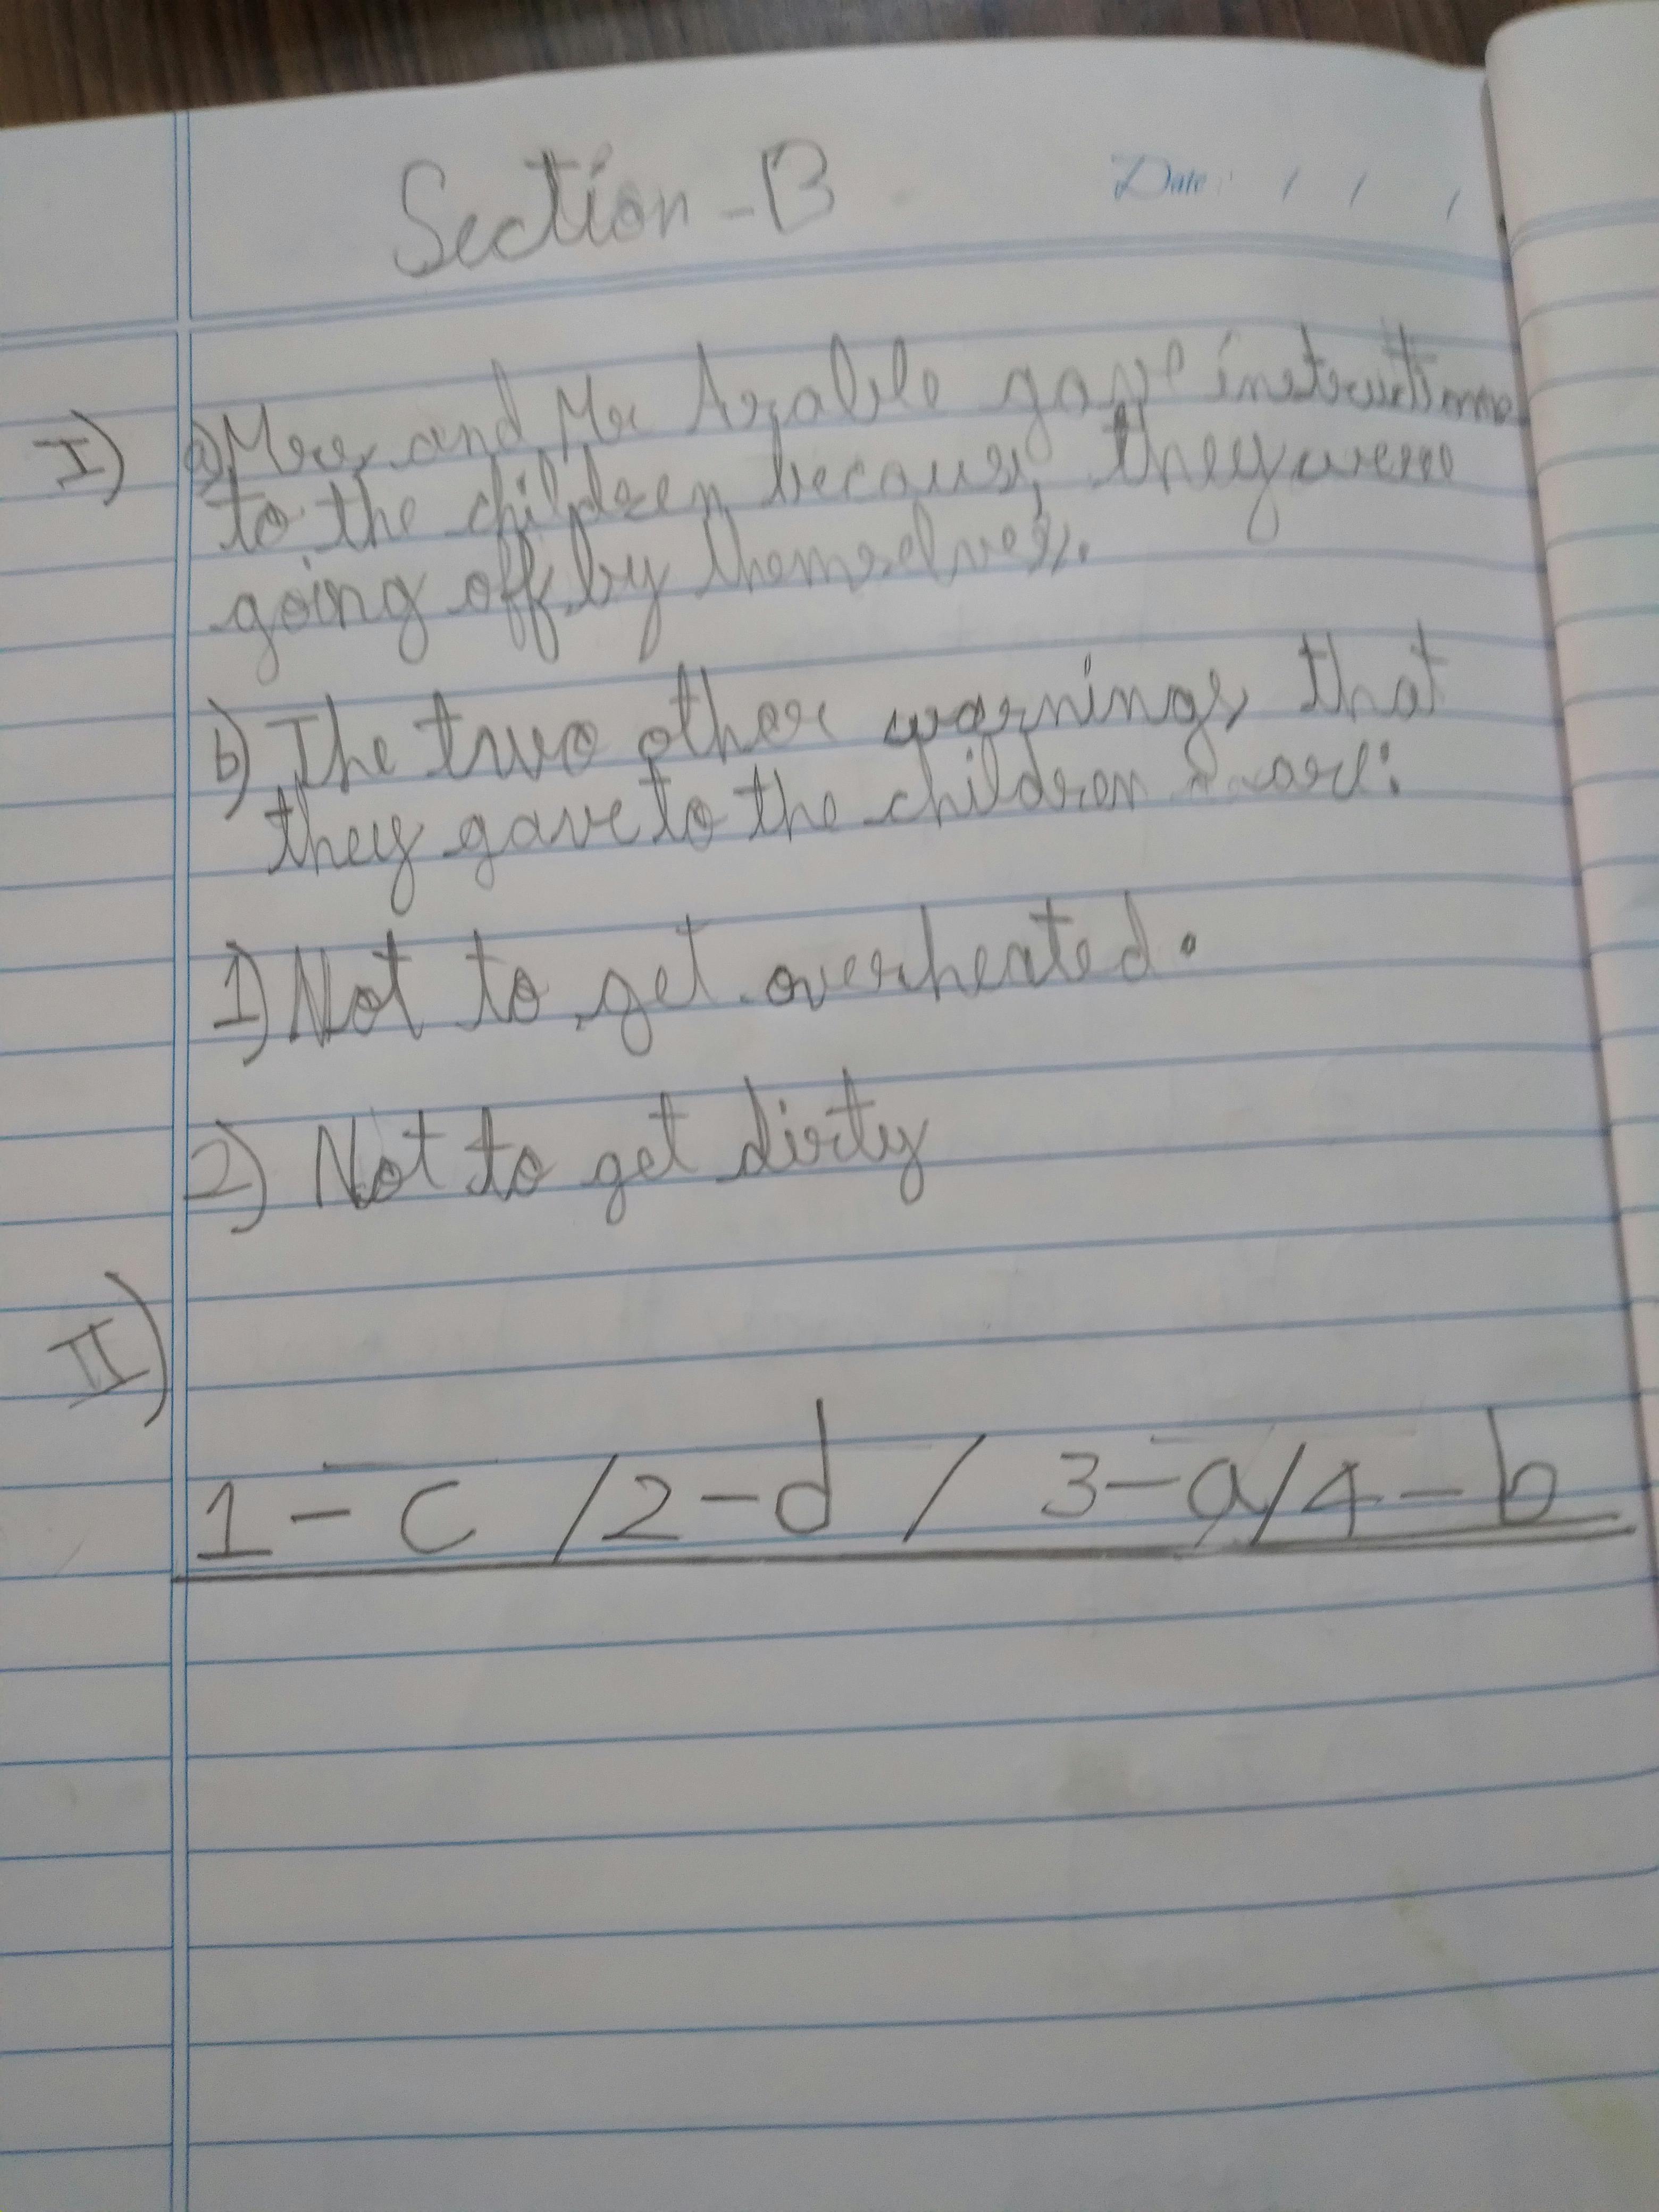 Section - B
Date: / / /
I) a) Mrs. and Mr Arable gave instructions
to the children because they were
going off by themselves.
b) The two other warnings that
they gave to the children are:
1) Not to get overheated.
2) Not to get dirty
II)
1 - c / 2 - d / 3 - a / 4 - b